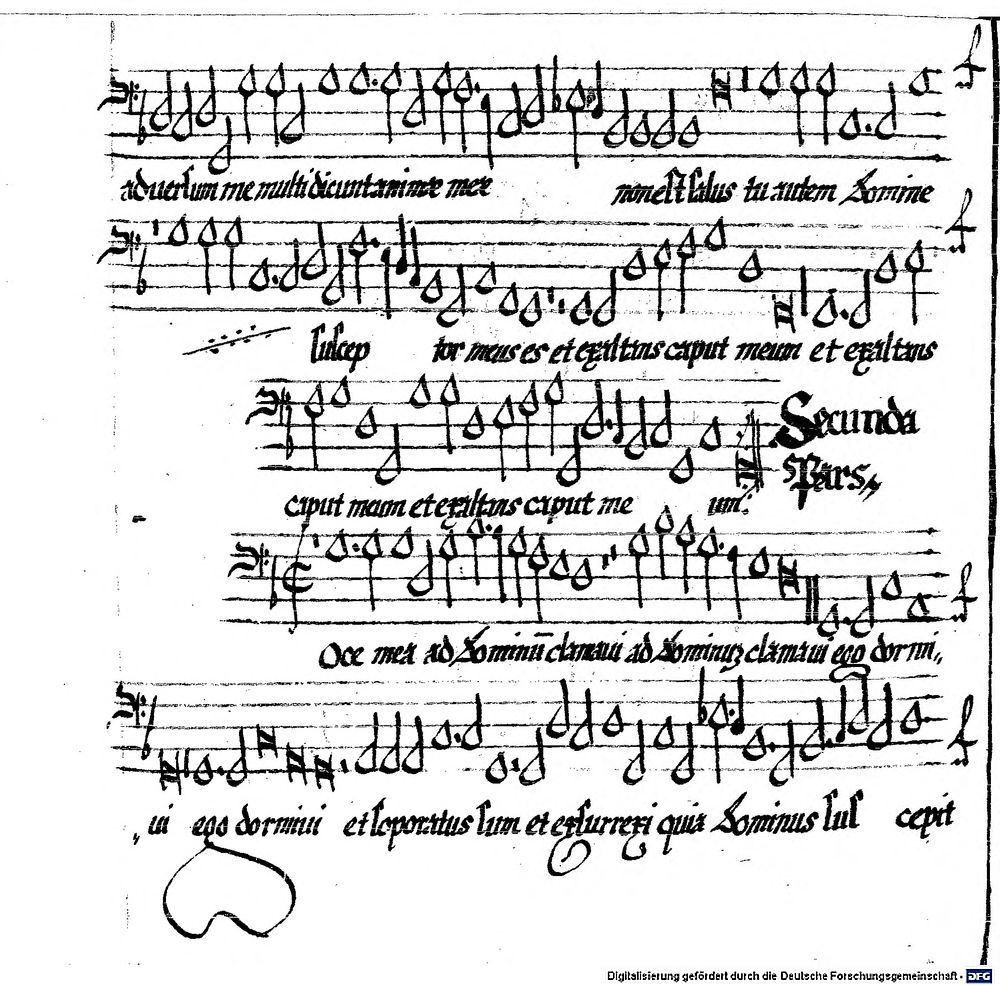 adversum me multi dicunt animae meae non est salus tu autem Domine
suscep tor meus es et exaltans caput meum et exaltans
Secunda
caput meum et exaltans caput me um:
Pars
Oce mea ad Dominū clamavi ad Dominuz clamavi ego dormi,,
,,vi ego dormivi et soporatus sum et exsurrexi quia Dominus sus cepit
Digitalisierung gefördert durch die Deutsche Forschungsgemeinschaft - DFG